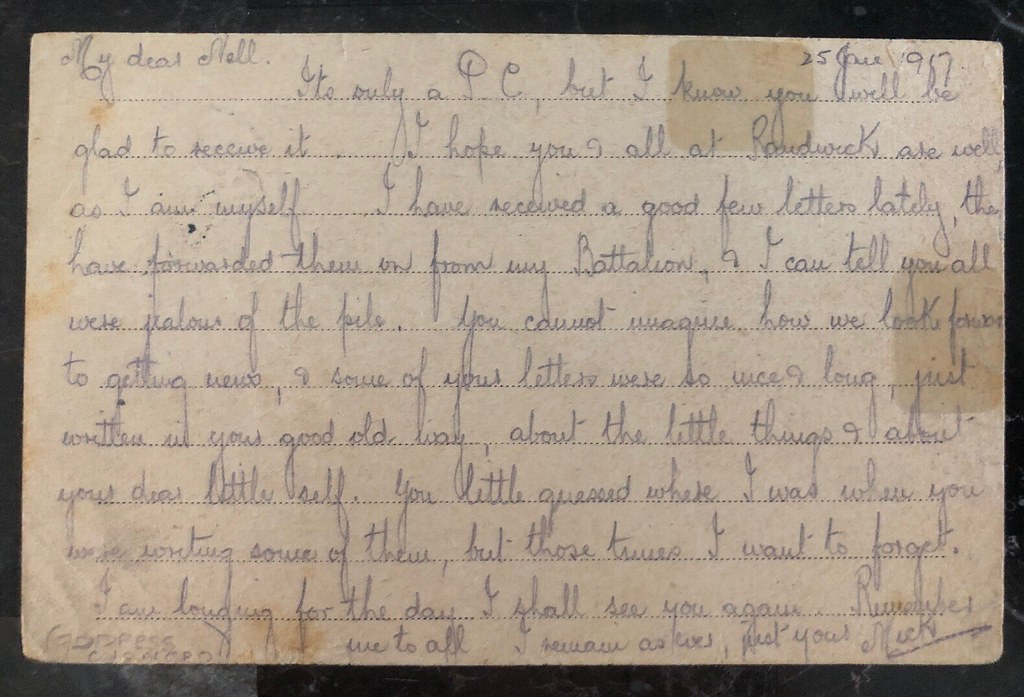 My dear Nell. 25 Jan 1917.
Its only a P C, but I know you will be
glad to receive it. I hope you & all at Randwick are well,
as I am myself I have received a good few letters lately, the
have forwarded them on from my Battalion, & I can tell you all
were jealous of the pile. You cannot imagine how we look forward
to getting news, & some of your letters were so nice & long, just
written in your good old way, about the little things & about
your dear little self. You little guessed where I was when you
were writing some of them, but those times I want to forget.
I am longing for the day I shall see you again. Remember
me to all. I remain as ever, just your Mick
(ADDRESS